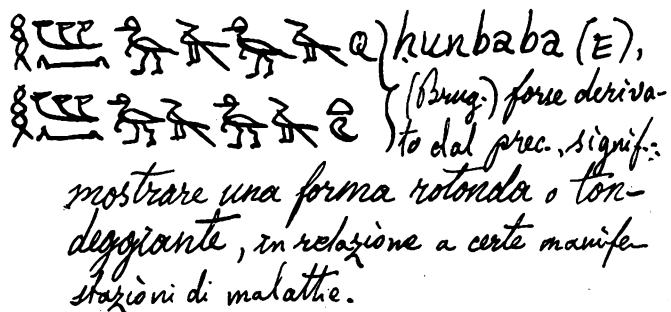 ḥunbaba (E),
(Brug.) forse deriva-
to dal prec., signif.:
mostrare una forma rotonda o ton-
deggiante, in relazione a certe manife-
stazioni di malattie.